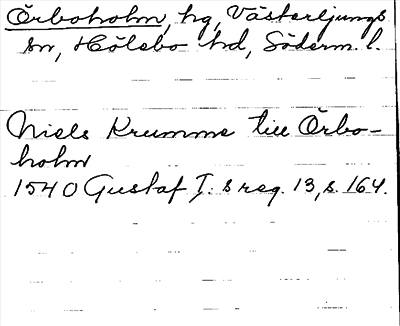 Örboholm, hg, Västerljungs
sn, Hölebo hd, Söderm. l.
Niels Krumme till Örbo-
holm
1540 Gustaf I: s reg. 13, s. 164.